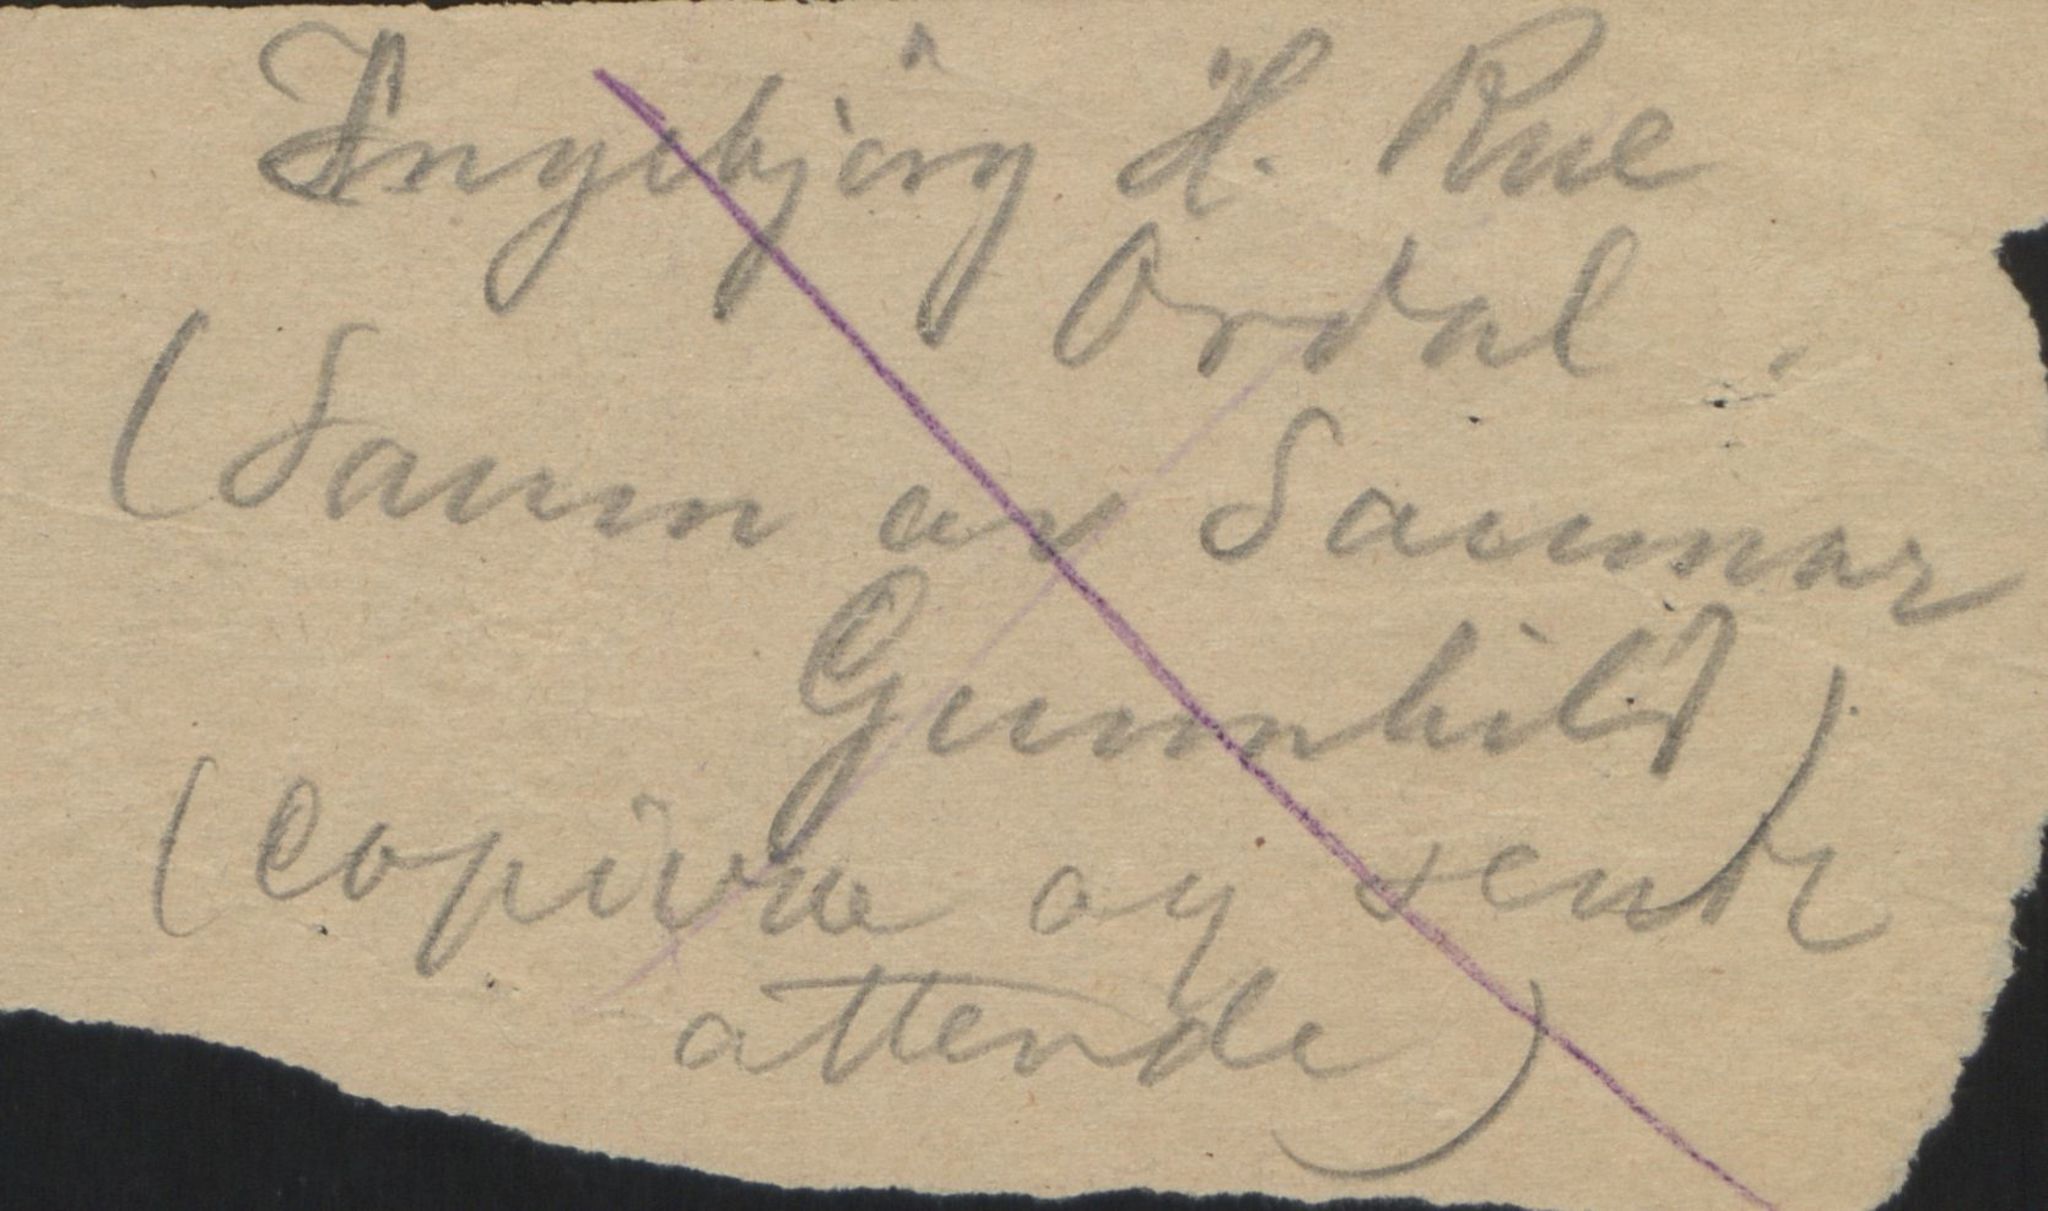 Ingebjörg H. Rue
Ordal.
(Saum av Saumar
Gunnhild)
(Copiere og sende
attende)